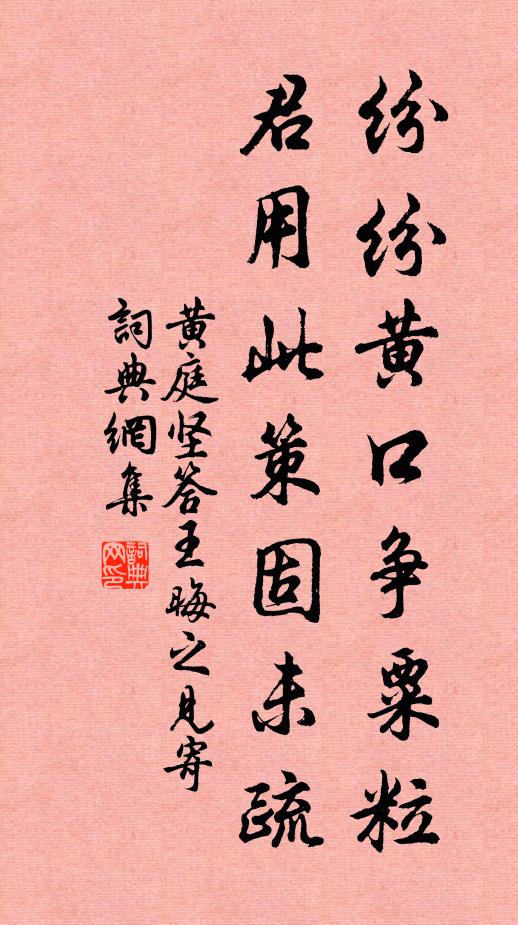 纷纷黄口争粟粒
君用此策固未疏
黄庭坚答王晦之见寄
詞典網集
詞典网印